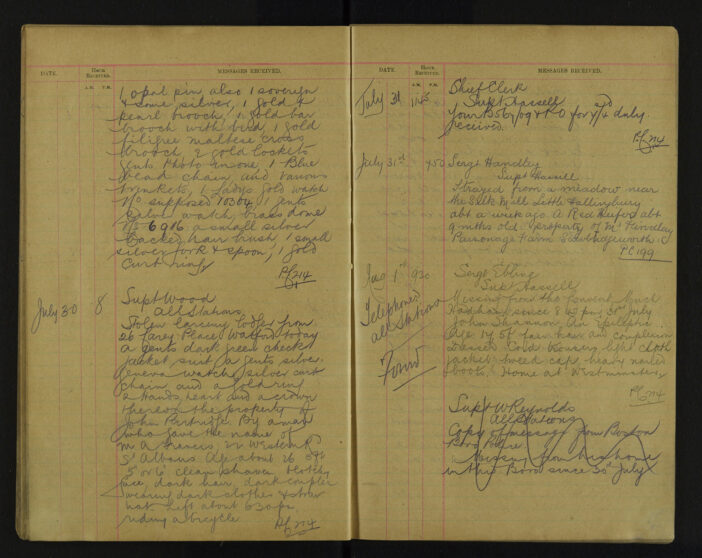 DATE.
HOUR RECEIVED.
MESSAGES RECEIVED.
A.M. P.M.
1 opal pin also 1 sovereign
& some silver, 1 gold &
pearl brooch, 1 gold bar
brooch with bird, 1 gold
filigree maltese cross
brooch 2 gold lockets
gents Photo in one, 1 Blue
bead chain and various
trinkets, 1 Ladys gold watch
No. supposed 10304, 1 gents
watch, brass dome
No 6916 a small silver
backed hair brush, 1 small
silver fork & spoon, 1 gold
curb ring
PC 214
July 30 8 Supt Wood
All Stations
Stolen larceny from
26 Place Watford today
a gents dark green check
jacket suit, a gents silver
geneva watch, silver curb
chain, and a gold ring
2 hands, heart and a crown
thereon the property of
John Partridge By a man
who gave the name of
M A Francis, 22 Western Rd
St Albans Age about 26 5ft
5 or 6 clean shaven blotchy
face, dark hair, dark complex
wearing dark clothes & straw
hat left about 6 30 pm
riding a bicycle
PC 214
DATE.
HOUR RECEIVED.
MESSAGES RECEIVED.
A.M. P.M.
July 31 1145 Chief Clerk
Supt Hassell
your B56/09 & for 2/4 duly
received
PC 214
July 31st 450 Sergt Handley
Supt Hassell
Strayed from a meadow near
the Silk Mill Little Hallingbury
abt a week ago A Red Heifer abt
9 mths old property of Mr
Parsonage Farm Sawbridgeworth
PC 199
Aug 1st 930 Sergt Ebling
Supt Hassell
Telephoned
all Stations
Missing from the Convent Much
Hadham since 8 45 pm 31st July
John Shannon, An Epileptic
Age 14 5ft fair hair and complexion
Dressed Cord knickers, light cloth
jacket, tweed cap, heavy nailed
boots. Home at Westminster
PC 214
Found
Supt W Reynolds
All Stations
Copy of message from Boston
Boro Police
Missing from his home
in this Boro since 30th July